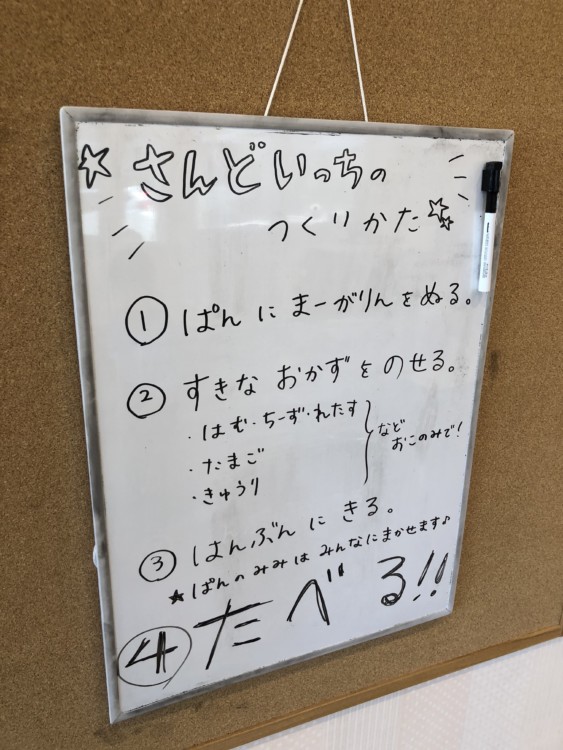 ☆さんどいっちの
つくりかた☆☆
① ぱん に まーがりん を ぬる。
② すきな おかず を のせる。
・はむ・ちーず・れたす
・たまご
・きゅうり
など
おこのみで!
③ はんぶん に きる。
★ぱんの みみは みんなに まかせます♪
④ たべる!!